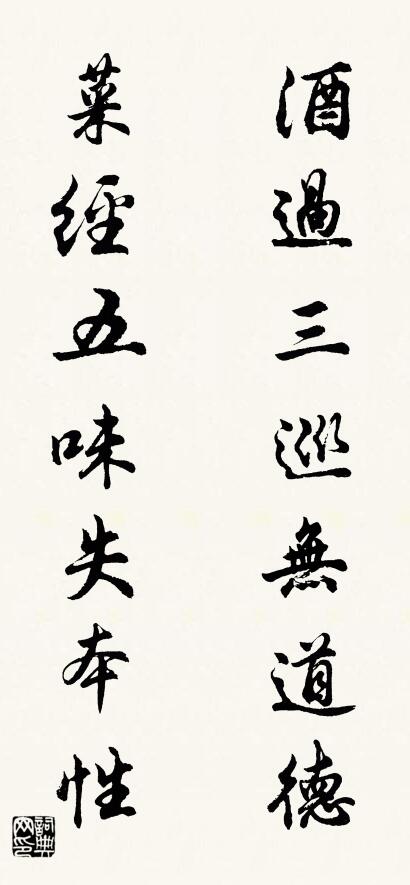 酒過三巡無道德
菜經五味失本性
詞典網印